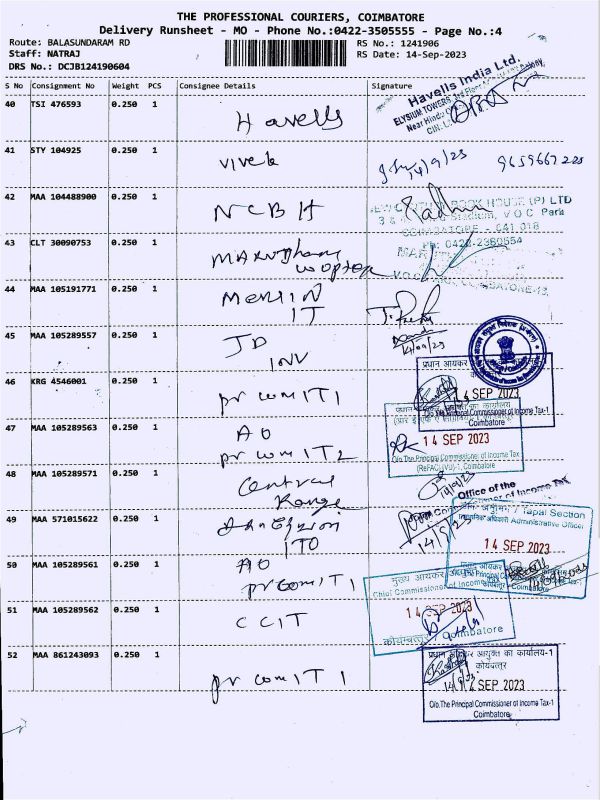 THE PROFESSIONAL COURIERS, COIMBATORE
Delivery Runsheet - MO - Phone No.:0422-3505555 - Page No.:4
Route: BALASUNDARAM RD
RS No.: 1241906
Staff: NATRAJ
RS Date: 14-Sep-2023
DRS No.: DCJB124190604
S No Consignment No Weight PCS Consignee Details Signature
Havells India Ltd.
40 TSI 476593 0.250 1
Havells
41 STY 104925 0.250 1
Vivek
14/9/23 9659667225
42 MAA 104488900 0.250 1
NCBH
BOOK HOUSE (P) LTD
Stadium, V O C Park
COIMBATORE - 641 018
Ph: 0422-2380554
43 CLT 30090753 0.250 1
44 MAA 105191771 0.250 1
Merlin
IT
45 MAA 105289557 0.250 1
JD
INV
46 KRG 4546001 0.250 1
Pr com IT 1
14 SEP 2023
O/o.The Principal Commissioner of Income Tax-1
Coimbatore
47 MAA 105289563 0.250 1
AO
Pr com IT 2
14 SEP 2023
O/o.The Principal Commissioner of Income Tax
(ReFAC)(VU)-1, Coimbatore
48 MAA 105289571 0.250 1
Central
Range
Office of the
Commissioner of Income Tax
49 MAA 571015622 0.250 1
ITO
Tapal Section
Administrative Officer
14 SEP 2023
50 MAA 105289561 0.250 1
AO
Pr com IT 1
मुख्य आयकर
Chief Commissioner of Income
51 MAA 105289562 0.250 1
CCIT
14 SEP 2023
कोयम्बत्तूर Coimbatore
52 MAA 861243093 0.250 1
Pr com IT 1
प्रधान आयकर आयुक्त का कार्यालय-1
14 SEP 2023
O/o.The Principal Commissioner of Income Tax-1
Coimbatore